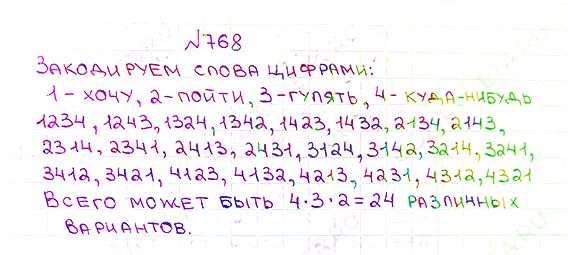 №768
Закодируем слова цифрами:
1 - хочу, 2 - пойти, 3 - гулять, 4 - куда-нибудь
1234, 1243, 1324, 1342, 1423, 1432, 2134, 2143,
2314, 2341, 2413, 2431, 3124, 3142, 3214, 3241,
3412, 3421, 4123, 4132, 4213, 4231, 4312, 4321
Всего может быть 4·3·2=24 различных
вариантов.